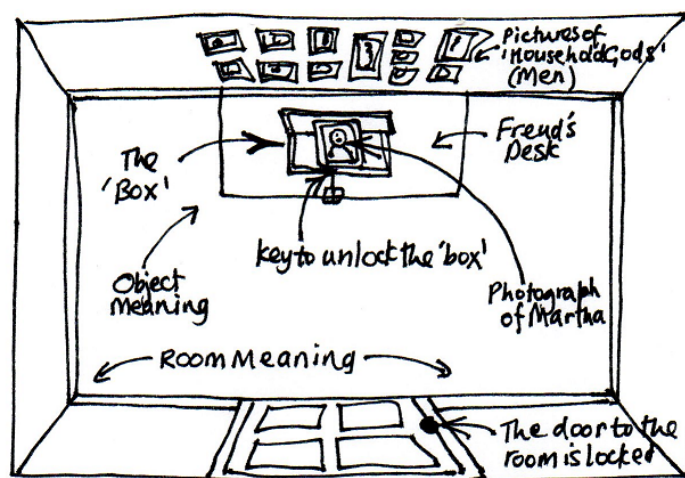 Pictures of
'Household Gods'
(Men)
The
'Box'
Freud's
Desk
key to unlock the 'box'
Object
Meaning
Photograph
of Martha
Room Meaning
The door to the
room is locked